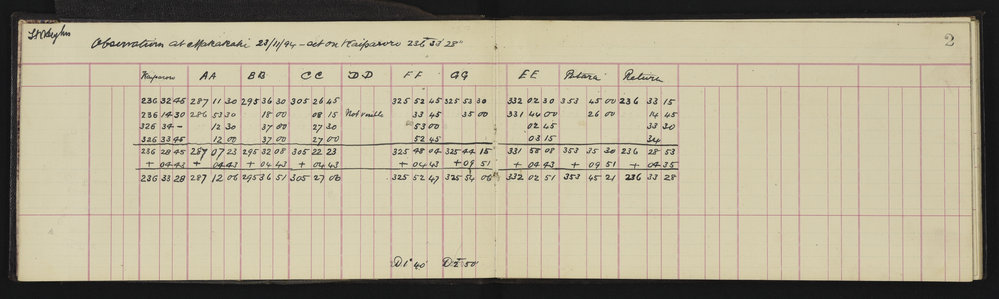 2
Observations at Makakahi 23/11/94 - set on Kaiparoro 236° 33' 28"
Kaiparoro AA BB CC DD FF GG EE Patara Return
236 32 45 287 11 30 295 36 30 305 26 45 325 52 45 325 53 30 332 02 30 353 45 00 236 33 15
236 14 30 286 53 30 18 00 08 15 Not visible 33 45 35 00 331 44 00 26 00 14 45
326 34 - 12 30 37 00 27 30 53 00 02 45 33 30
326 33 45 12 00 37 00 27 00 52 45 03 15 34
236 28 45 287 07 23 295 32 08 305 22 23 325 48 04 325 44 15 331 58 08 353 35 30 236 28 53
+ 04 43 + 04 43 + 04 43 + 04 43 + 04 43 + 09 51 + 04 43 + 09 51 + 04 35
236 33 28 287 12 06 295 36 51 305 27 06 325 52 47 325 54 06 332 02 51 353 45 21 236 33 28
D 1° 40' D 2° 50'